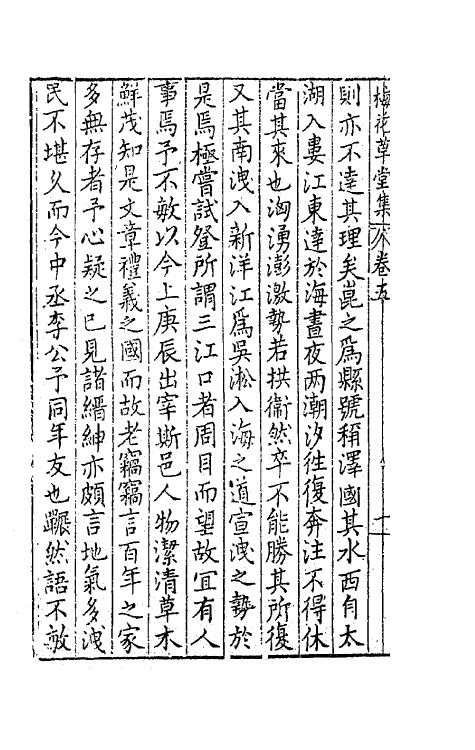 梅花草堂集 卷五 十一
則亦不達其理矣崑之爲縣號稱澤國其水西自太
湖入婁江東達於海晝夜两潮汐徃復奔注不得休
當其來也洶湧澎激勢若拱衞然卒不能勝其所復
又其南洩入新洋江爲吳淞入海之道宣洩之勢於
是焉極嘗試登所謂三江口者周目而望故宜有人
事焉予不敏以今上庚辰出宰斯邑人物潔清草木
鮮茂知是文章禮義之國而故老竊竊言百年之家
多無存者予心疑之已見諸縉紳亦頗言地氣多洩
民不堪久而今中丞李公予同年友也囅然語不敏